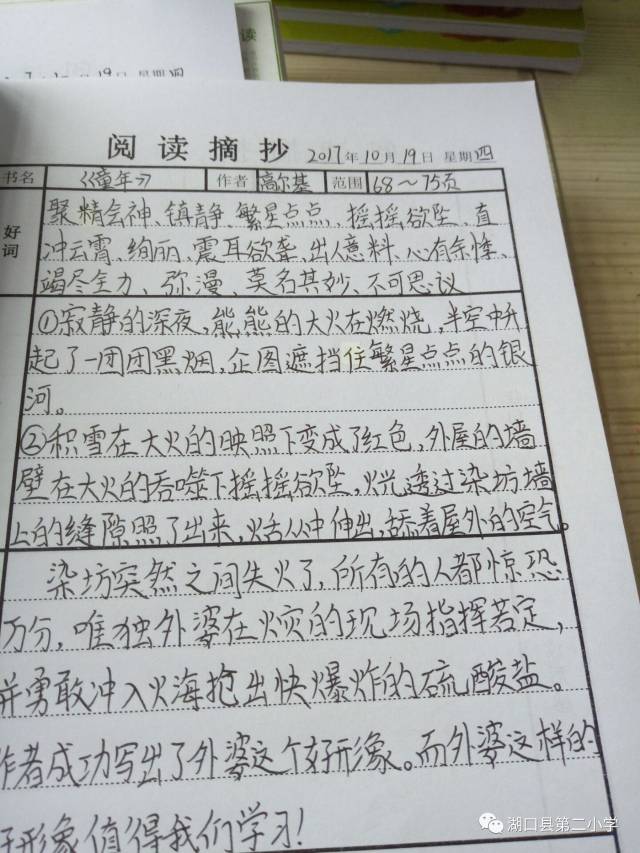 读
7 19日 星期四
阅读摘抄 2017年10月19日 星期四
书名 《童年》 作者 高尔基 范围 68～75页
好词
聚精会神、镇静、繁星点点、摇摇欲坠、直
冲云霄、绚丽、震耳欲聋、出人意料、心有余悸、
竭尽全力、弥漫、莫名其妙、不可思议
①寂静的深夜，熊熊的大火在燃烧，半空中升
起了一团团黑烟，企图遮挡住繁星点点的银
河。
②积雪在大火的映照下变成了红色，外屋的墙
壁在大火的吞噬下摇摇欲坠，火光透过染坊墙
上的缝隙照了出来，火舌从中伸出，舔着屋外的空气。
染坊突然之间失火了，所有的人都惊恐
万分，唯独外婆在火灾的现场指挥若定，
并勇敢冲入火海抢出快爆炸的硫酸盐。
作者成功写出了外婆这个好形象。而外婆这样的
好形象值得我们学习！
湖口县第二小学